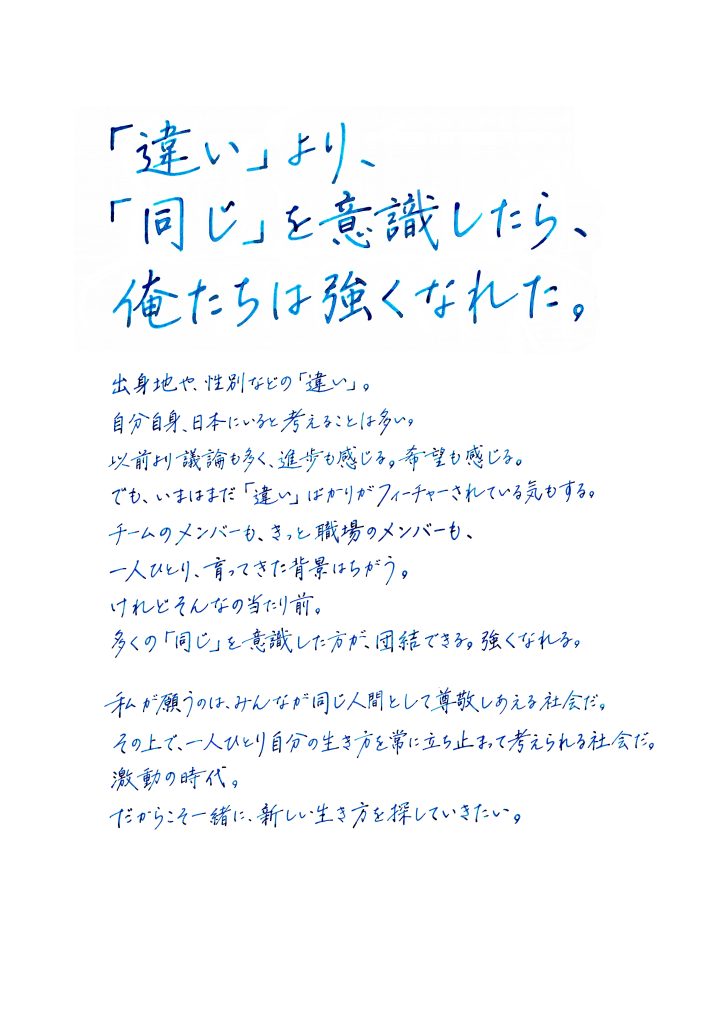 「違い」より、
「同じ」を意識したら、
俺たちは強くなれた。
出身地や、性別などの「違い」。
自分自身、日本にいると考えることは多い。
以前より議論も多く、進歩も感じる。希望も感じる。
でも、いまはまだ「違い」ばかりがフィーチャーされている気もする。
チームのメンバーも、きっと職場のメンバーも、
一人ひとり、育ってきた背景はちがう。
けれどそんなの当たり前。
多くの「同じ」を意識した方が、団結できる。強くなれる。
私が願うのは、みんなが同じ人間として尊敬しあえる社会だ。
その上で、一人ひとり自分の生き方を常に立ち止まって考えられる社会だ。
激動の時代。
だからこそ一緒に、新しい生き方を探していきたい。